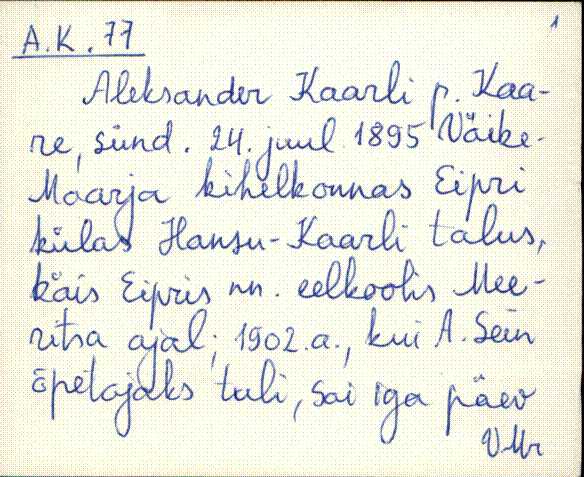 1
A.K. 77
Aleksander Kaarli p. Kaa-
re, sünd. 24. juul 1895 Väike-
Maarja kihelkonnas Eipri
külas Hansu-Kaarli talus,
käis Eipris nn. eelkoolis Mee-
ritsa ajal; 1902.a., kui A. Sein
õpetajaks tuli, sai iga päev